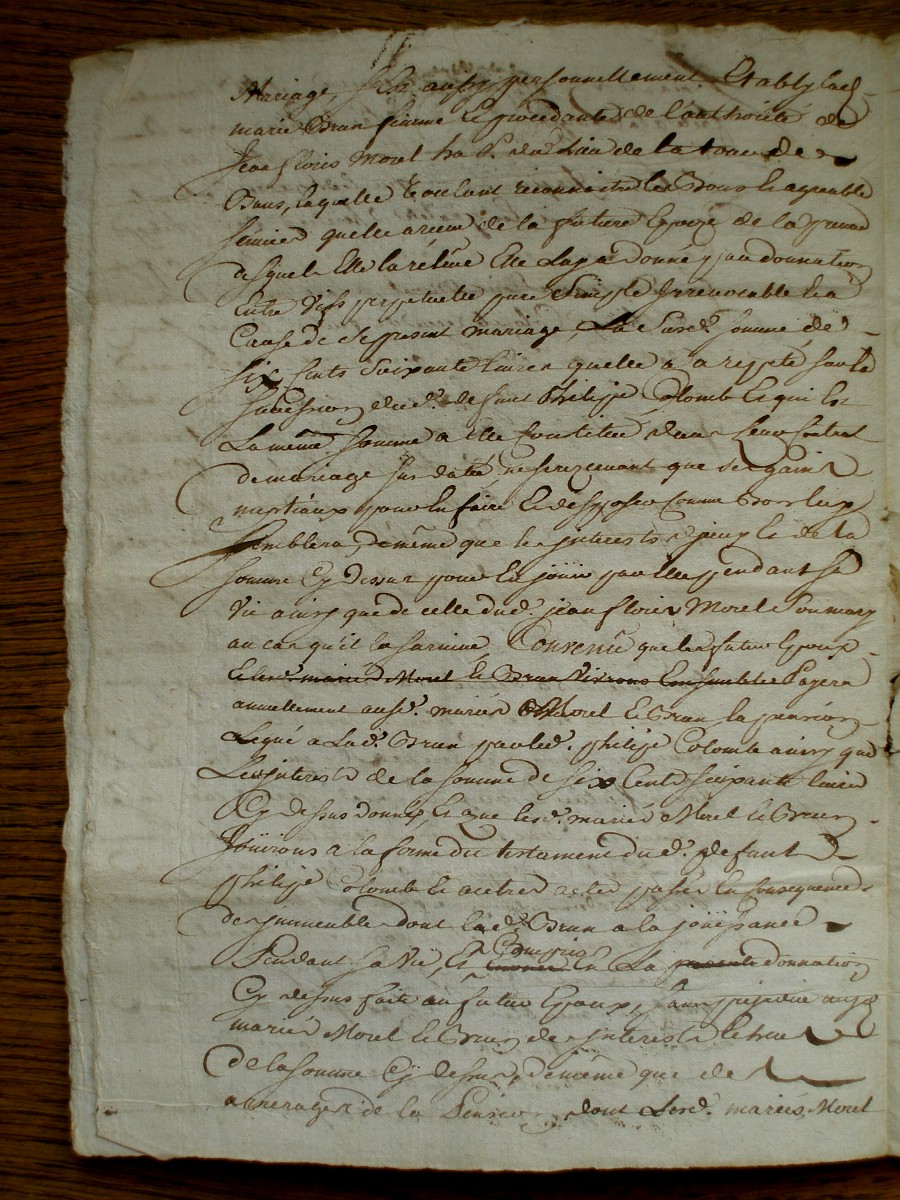 Mariage, S'est aussy personnellement Etably lad.
marie Brun femme Et procedante de l'authorité de
Jean floris Morel ha P. du Lieu de la tour de
Baus, laquelle voulant reconnoitre les Bons Et agreable
services quelle a receu de la future Epouze de la
desquels Elle la relève Elle luy a donné par donnation
Entre vifs perpetuelle pure Simple Irrevocable Et a
Cause de Ce present mariage, La Susd. somme de
six Cents Soixante Livres quelle a a repeté sur la
succession dud. defunt Philippe Colomb Et qui Est
La même Somme a Elle Constituée dans Leur Contrat
de mariage sus daté, ne se rezervant que ses gains
nuptiaux pour En faire Et dispozer Comme Bon luy
Semblera, de même que les jnterests de la
somme Cy dessus pour En joüir par Elle pendant sa
Vie ainsy que de celle dud. jean floris Morel Son mary
au cas qu'il la survive, Convenu que les futurs Epoux
Et lesd. mariés Morel Et Brun Vivrons Ensemble Et Payera
annuellement ausd. mariés Morel Et Brun la pension
Legué a Lad. Brun par led. philipe Colomb ainsy que
Les jnterests de la somme de six Cents soixante livres
Cy dessus donnée, Et que lesd. mariés Morel Et Brun
Joüirons a la forme du testament dud. defunt
philipe Colomb Et autres actes passés En Consequence
des jmmeubles dont lad. Brun a la joüissance
Pendant sa Vie, Et Compris En La presente donnation
Cy dessus faite au futur Epoux, Sans prejudice
mariés Morel Et Brun des jnterests Echus
de la somme Cy dessus, de même que des
arrerages de la Pension dont Lesd. mariés Morel